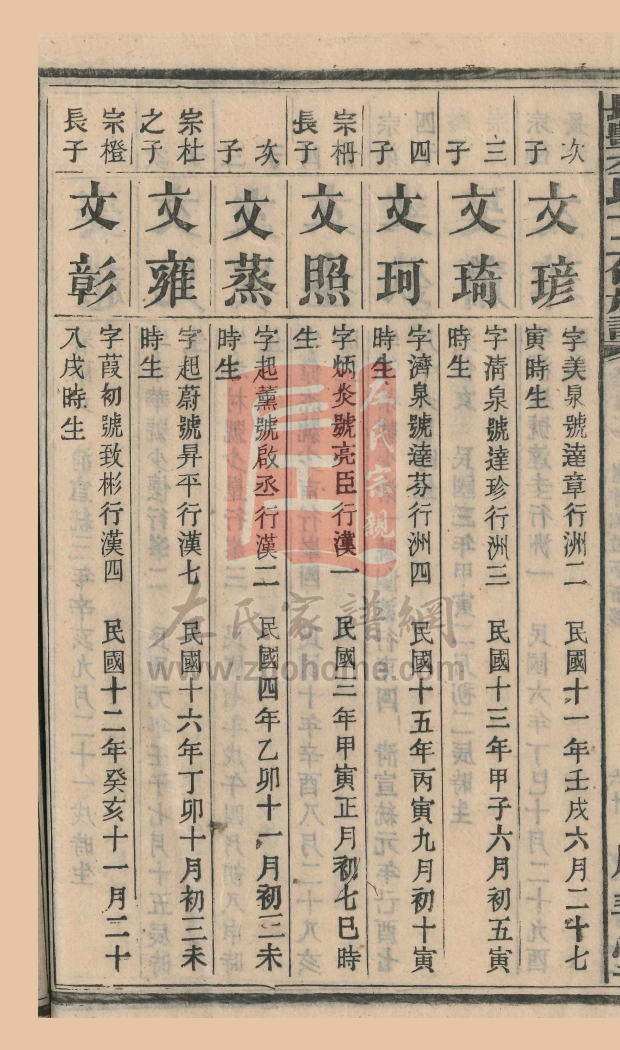 次
子
文瑃
字美泉號達章行洲二　民國十一年壬戌六月二十七
寅時生
三
子
文琦
字清泉號達珍行洲三　民國十三年甲子六月初五寅
時生
四
子
文珂
字濟泉號達芬行洲四　民國十五年丙寅九月初十寅
時生
宗枬
長子
文照
字炳炎號亮臣行漢一　民國三年甲寅正月初七巳時
生
次
子
文蒸
字起薰號啟丞行漢二　民國四年乙卯十一月初三未
時生
宗杜
之子
文雍
字起蔚號昇平行漢七　民國十六年丁卯十月初三未
時生
宗橙
長子
文彰
字葭初號致彬行漢四　民國十二年癸亥十一月二十
八戌時生
左氏宗親
左氏家譜網
www.zuohome.com